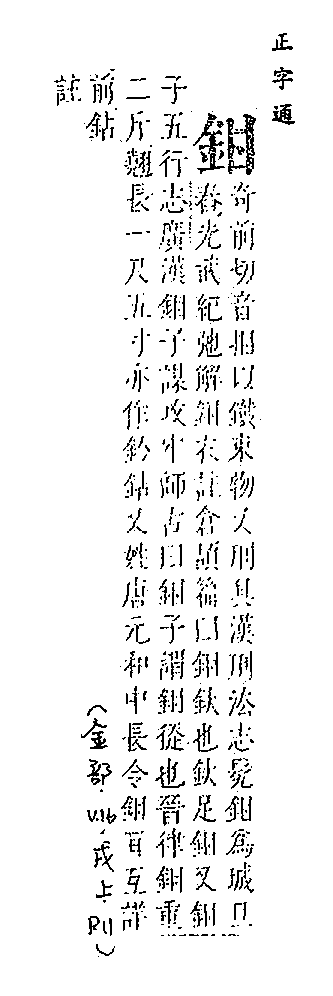 正字通
鉗
奇前切音以鐵束物又刑具漢刑法志髡鉗爲城旦
舂光武紀弛解鉗衣註倉頡篇曰鉗釱也釱足鉗又鉗
子五行志廣漢鉗子謀攻牢師古曰鉗子謂鉗從也晉律鉗重
二斤翹長一尺五寸亦作鉆又姓唐元和中長令鉗互詳
前鉆
註
(金部.V.16.戌上.P11)